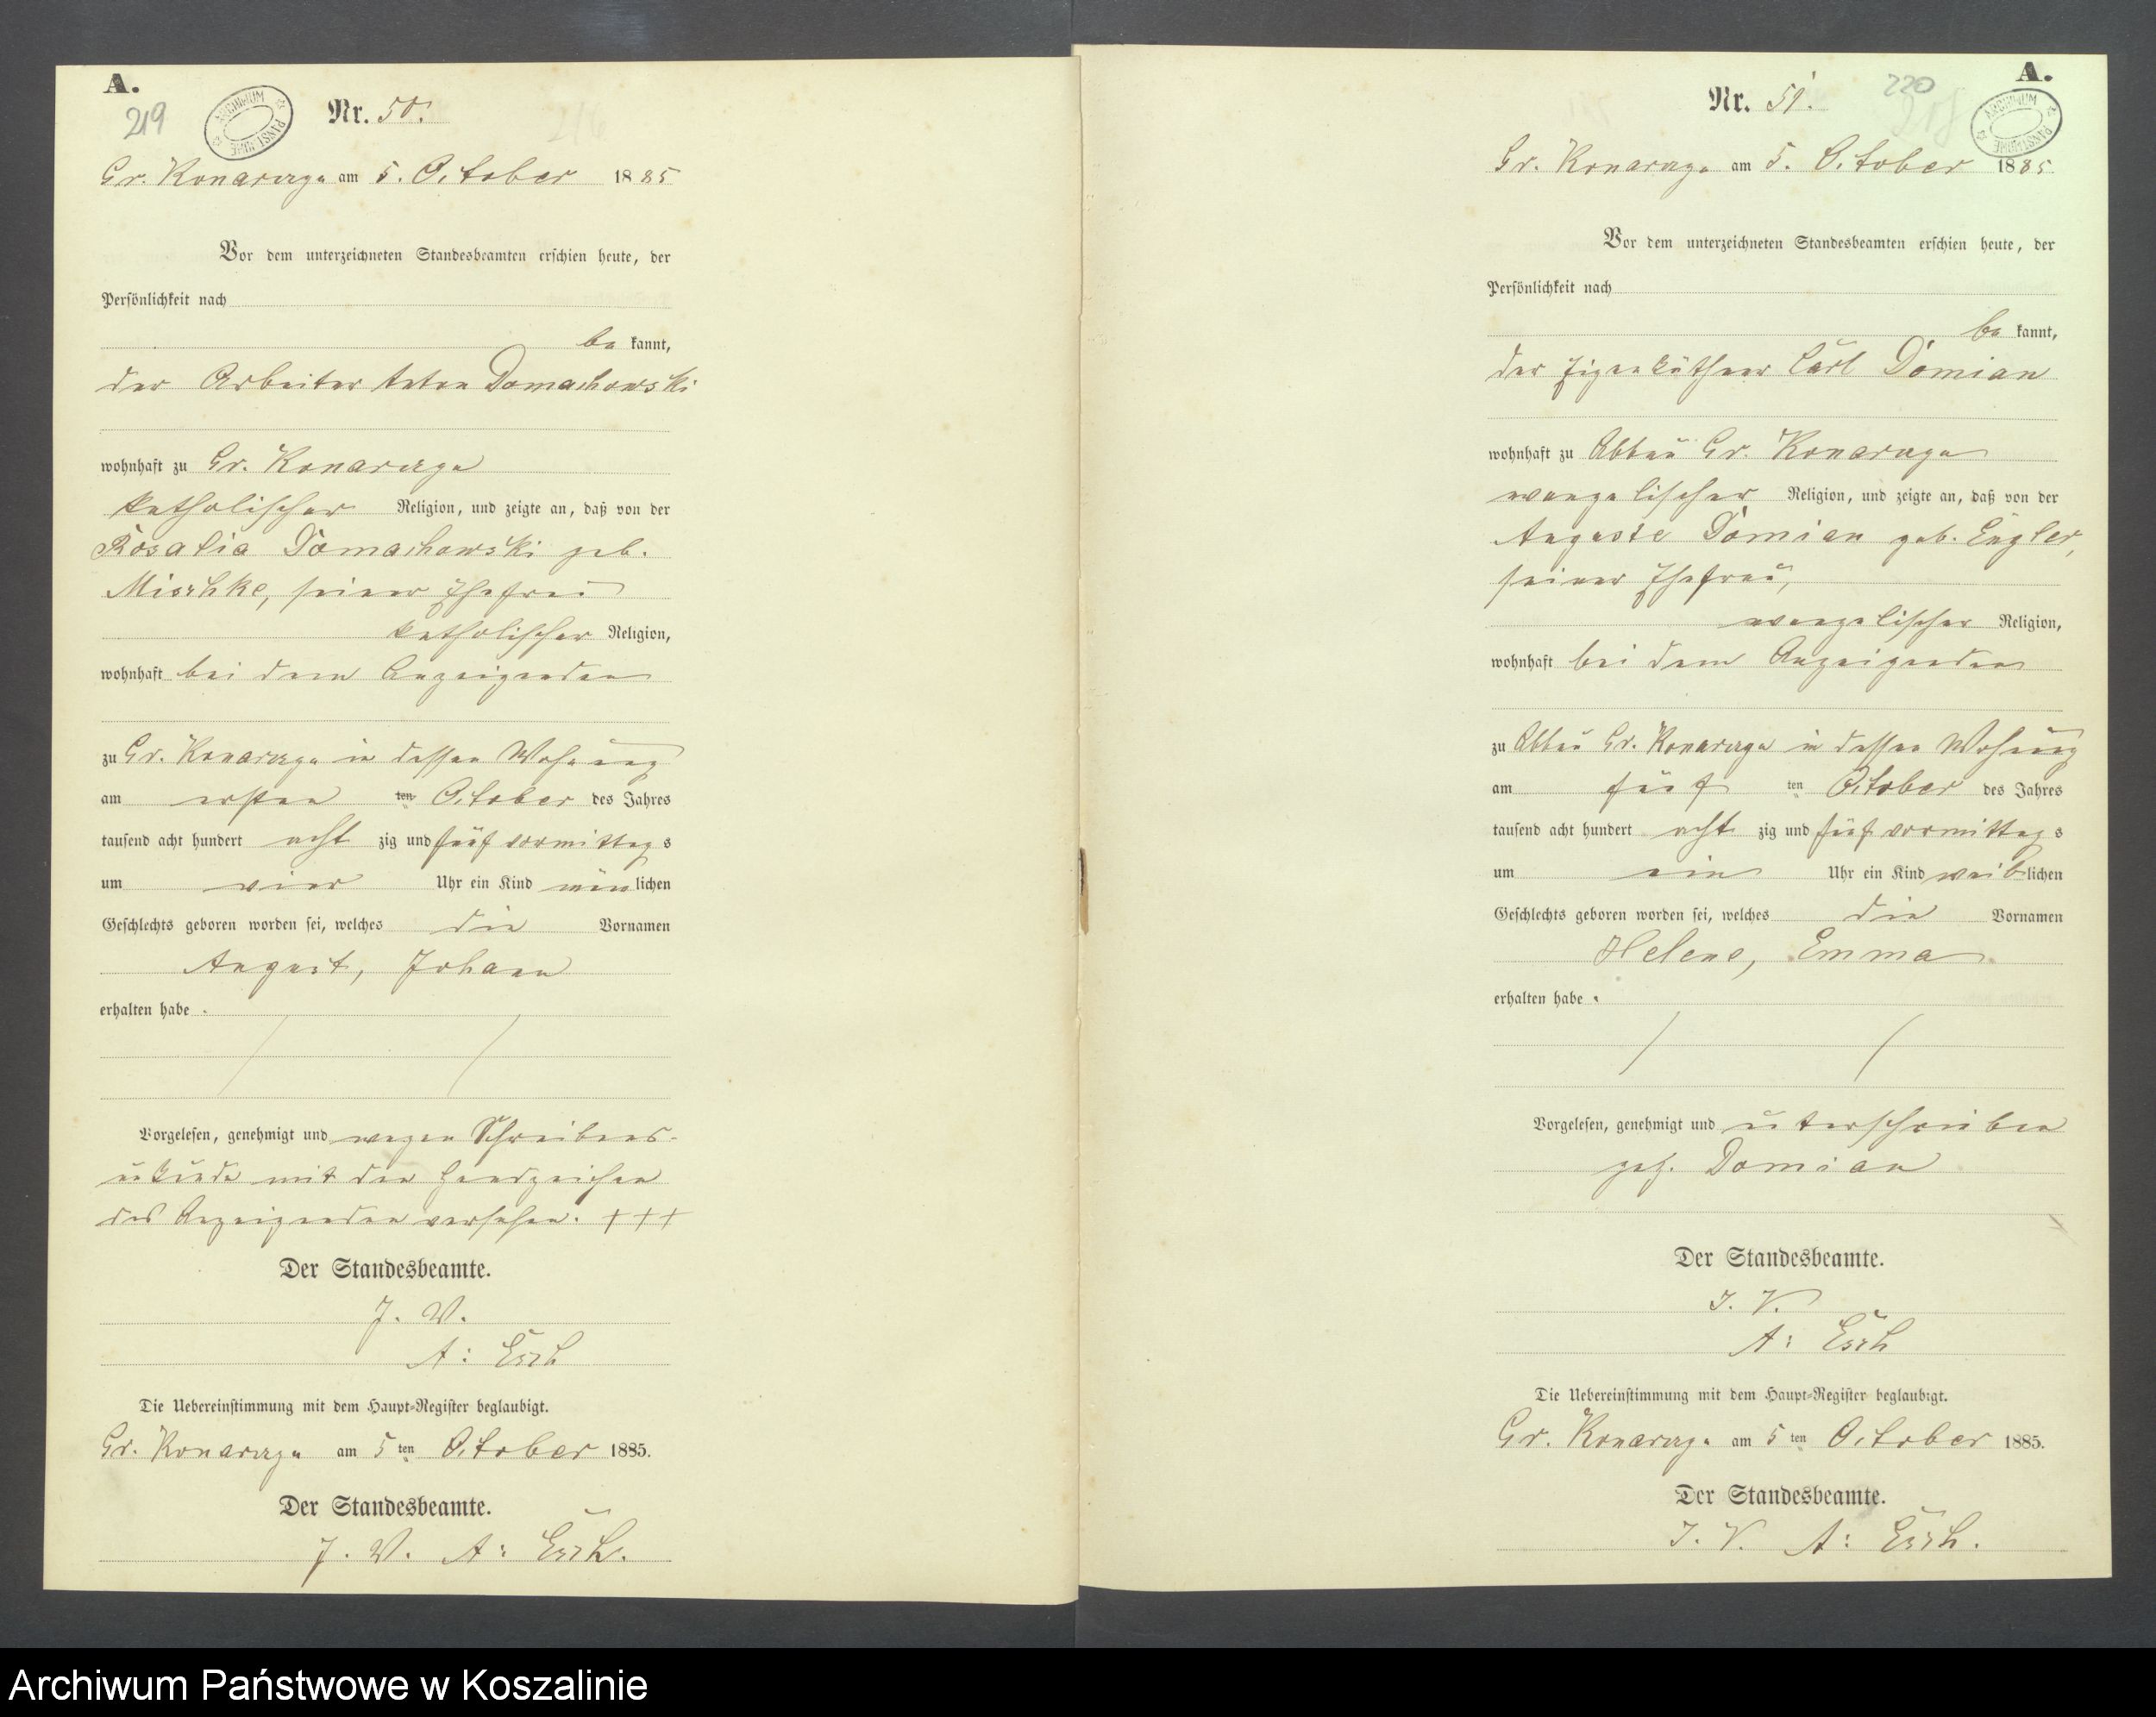 A.
219
ARCHIWUM PAŃSTWOWE
Nr. 50.
Gr. Konarczyn am 5. October 1885
Vor dem unterzeichneten Standesbeamten erschien heute, der
Persönlichkeit nach
be kannt,
der Arbeiter Anton Domachowski
wohnhaft zu Gr. Konarczyn
katholischer Religion, und zeigte an, daß von der
Rosalia Domachowski geb.
Mischke, seiner Ehefrau
katholischer Religion,
wohnhaft bei dem Anzeigenden
zu Gr. Konarczyn in dessen Wohnung
am ersten ten October des Jahres
tausend acht hundert acht zig und fünf vormittag s
um vier Uhr ein Kind män lichen
Geschlechts geboren worden sei, welches die Vornamen
August, Johann
erhalten habe .
Vorgelesen, genehmigt und wegen Schreibens-
unkunde mit den Handzeichen
des Anzeigenden versehen. +++
Der Standesbeamte.
J. V.
A: Esch
Die Uebereinstimmung mit dem Haupt-Register beglaubigt.
Gr. Konarczyn am 5 ten October 1885.
Der Standesbeamte.
J. V. A: Esch.
A.
220
218
ARCHIWUM PAŃSTWOWE
Nr. 51.
Gr. Konarczyn am 5. October 1885.
Vor dem unterzeichneten Standesbeamten erschien heute, der
Persönlichkeit nach
be kannt,
der Eigenkäthner Carl Domian
wohnhaft zu Abbau Gr. Konarczyn
evangelischer Religion, und zeigte an, daß von der
Auguste Domian geb. Engler,
seiner Ehefrau,
evangelischer Religion,
wohnhaft bei dem Anzeigenden
zu Abbau Gr. Konarczyn in dessen Wohnung
am fünf ten October des Jahres
tausend acht hundert acht zig und fünf vormittag s
um ein Uhr ein Kind weib lichen
Geschlechts geboren worden sei, welches die Vornamen
Helene, Emma
erhalten habe .
Vorgelesen, genehmigt und unterschrieben
gez. Domian
Der Standesbeamte.
I. V.
A: Esch
Die Uebereinstimmung mit dem Haupt-Register beglaubigt.
Gr. Konarczyn am 5 ten October 1885.
Der Standesbeamte.
I. V. A: Esch.
Archiwum Państwowe w Koszalinie